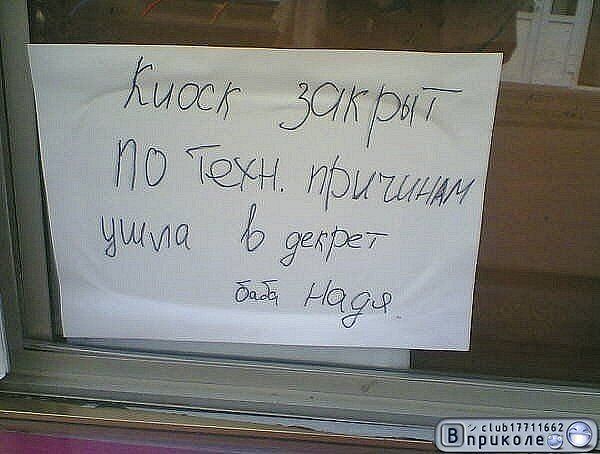 Киоск закрыт
по техн. причинам
ушла в декрет
баба Надя.
club17711662
Вприколе